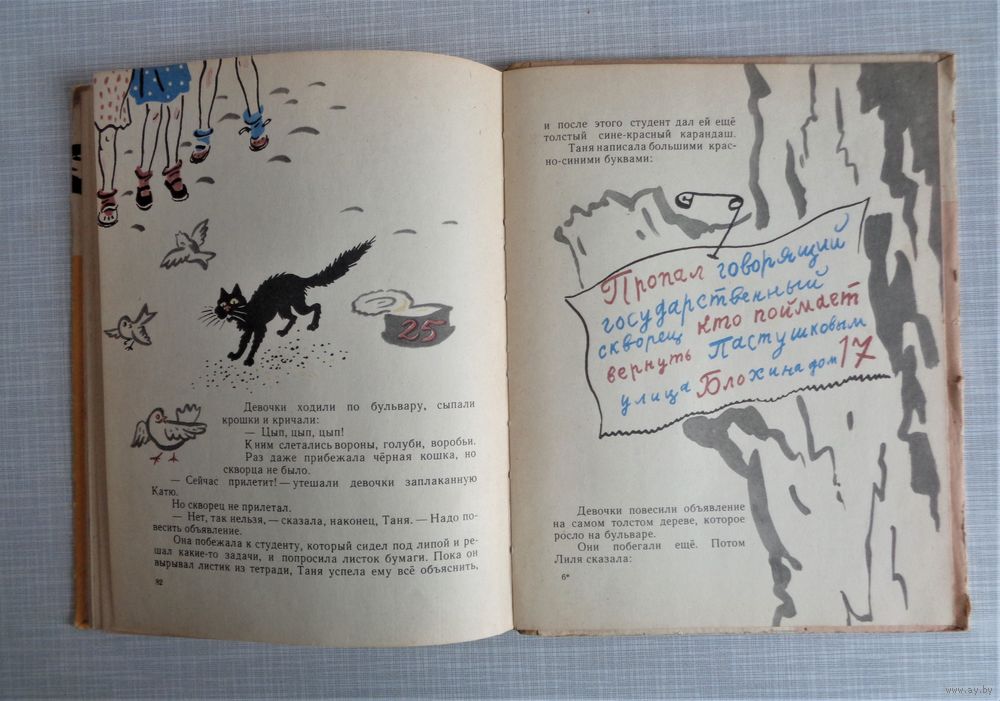 25
Девочки ходили по бульвару, сыпали
крошки и кричали:
— Цып, цып, цып!
К ним слетались вороны, голуби, воробьи.
Раз даже прибежала чёрная кошка, но
скворца не было.
— Сейчас прилетит! — утешали девочки заплаканную
Катю.
Но скворец не прилетал.
— Нет, так нельзя, — сказала, наконец, Таня. — Надо по-
весить объявление.
Она побежала к студенту, который сидел под липой и ре-
шал какие-то задачи, и попросила листок бумаги. Пока он
вырывал листик из тетради, Таня успела ему всё объяснить,
82
и после этого студент дал ей ещё
толстый сине-красный карандаш.
Таня написала большими крас-
но-синими буквами:
Пропал говорящий
государственный
скворец кто поймает
вернуть Пастушковым
улица Блохина дом 17
Девочки повесили объявление
на самом толстом дереве, которое
росло на бульваре.
Они побегали ещё. Потом
Лиля сказала:
6*
www.ay.by